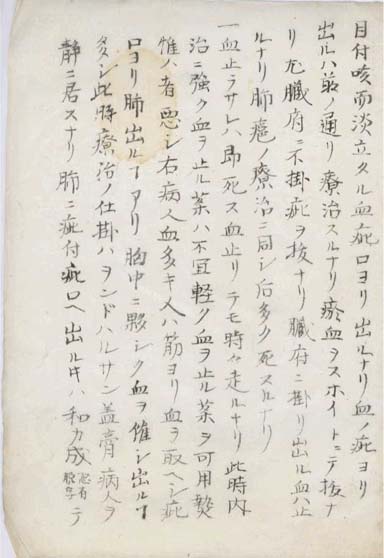 目付咳而淡立クル血疵口ヨリ出ルナリ血ノ疵ヨリ
出ルハ前ノ通リ療治スルナリ瘀血ヲスホイトニテ抜ナ
リ尤臓府ニ不掛疵ヲ抜ナリ臓府ニ掛リ出ル血ハ止
ルナリ肺癰ノ療治ニ同シ后多ク死スルナリ
一血止ラサレハ即死ス血止リテモ時々走ルナリ此時内
治ニ強ク血ヲ止ル薬ハ不宜軽ク血ヲ止ル薬ヲ可用熱
惟ハ者悪シ右病人血多キ人ハ筋ヨリ血ヲ取ヘシ疵
口ヨリ肺出ルヿアリ胸中ニ夥シク血ヲ催シ出ルヿ
多シ此時療治ノ仕掛ハヲンドハルサン盖膏病人ヲ
静ニ居スナリ肺ニ疵付疵口ヘ出ルキハ和カ成テ